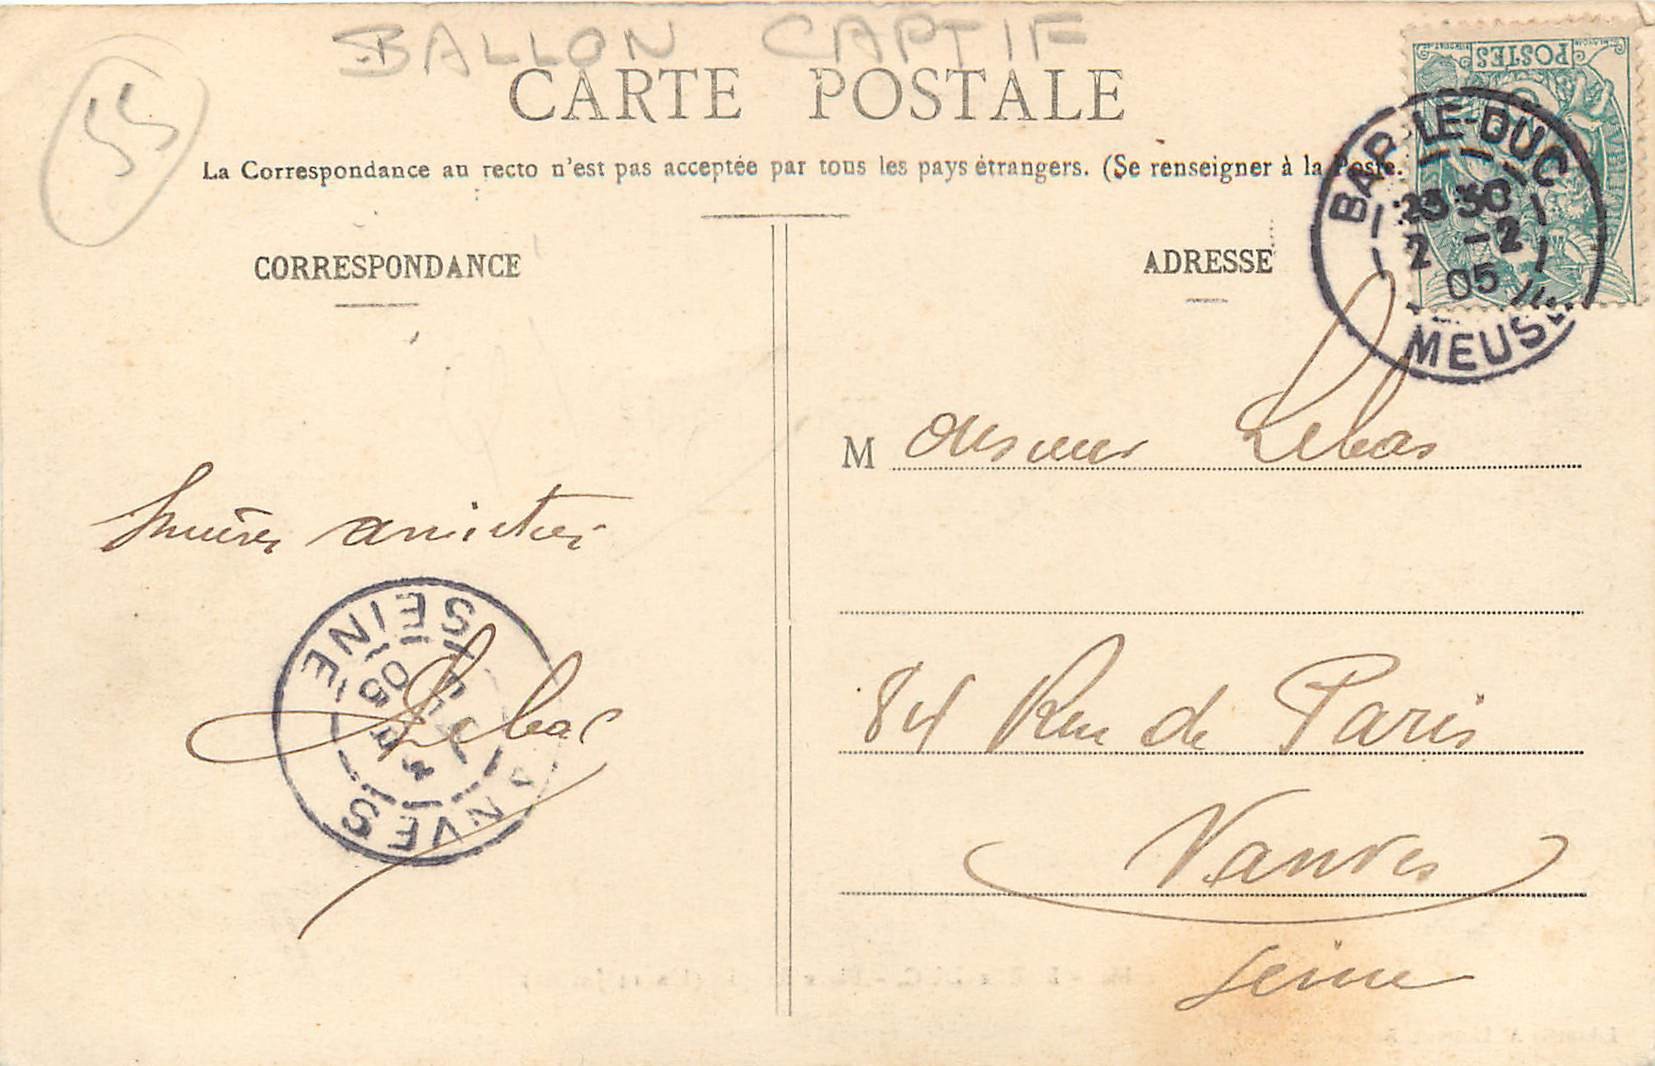 BALLON CAPTIF
55
CARTE POSTALE
La Correspondance au recto n'est pas acceptée par tous les pays étrangers. (Se renseigner à la Poste.
POSTES
BAR-LE-DUC
2-2
05
MEUSE
CORRESPONDANCE
ADRESSE
Monsieur Lebas
Sincères amitiés
Lebas
84 Rue de Paris
Vanves
Seine
SEINE
05
VANVES